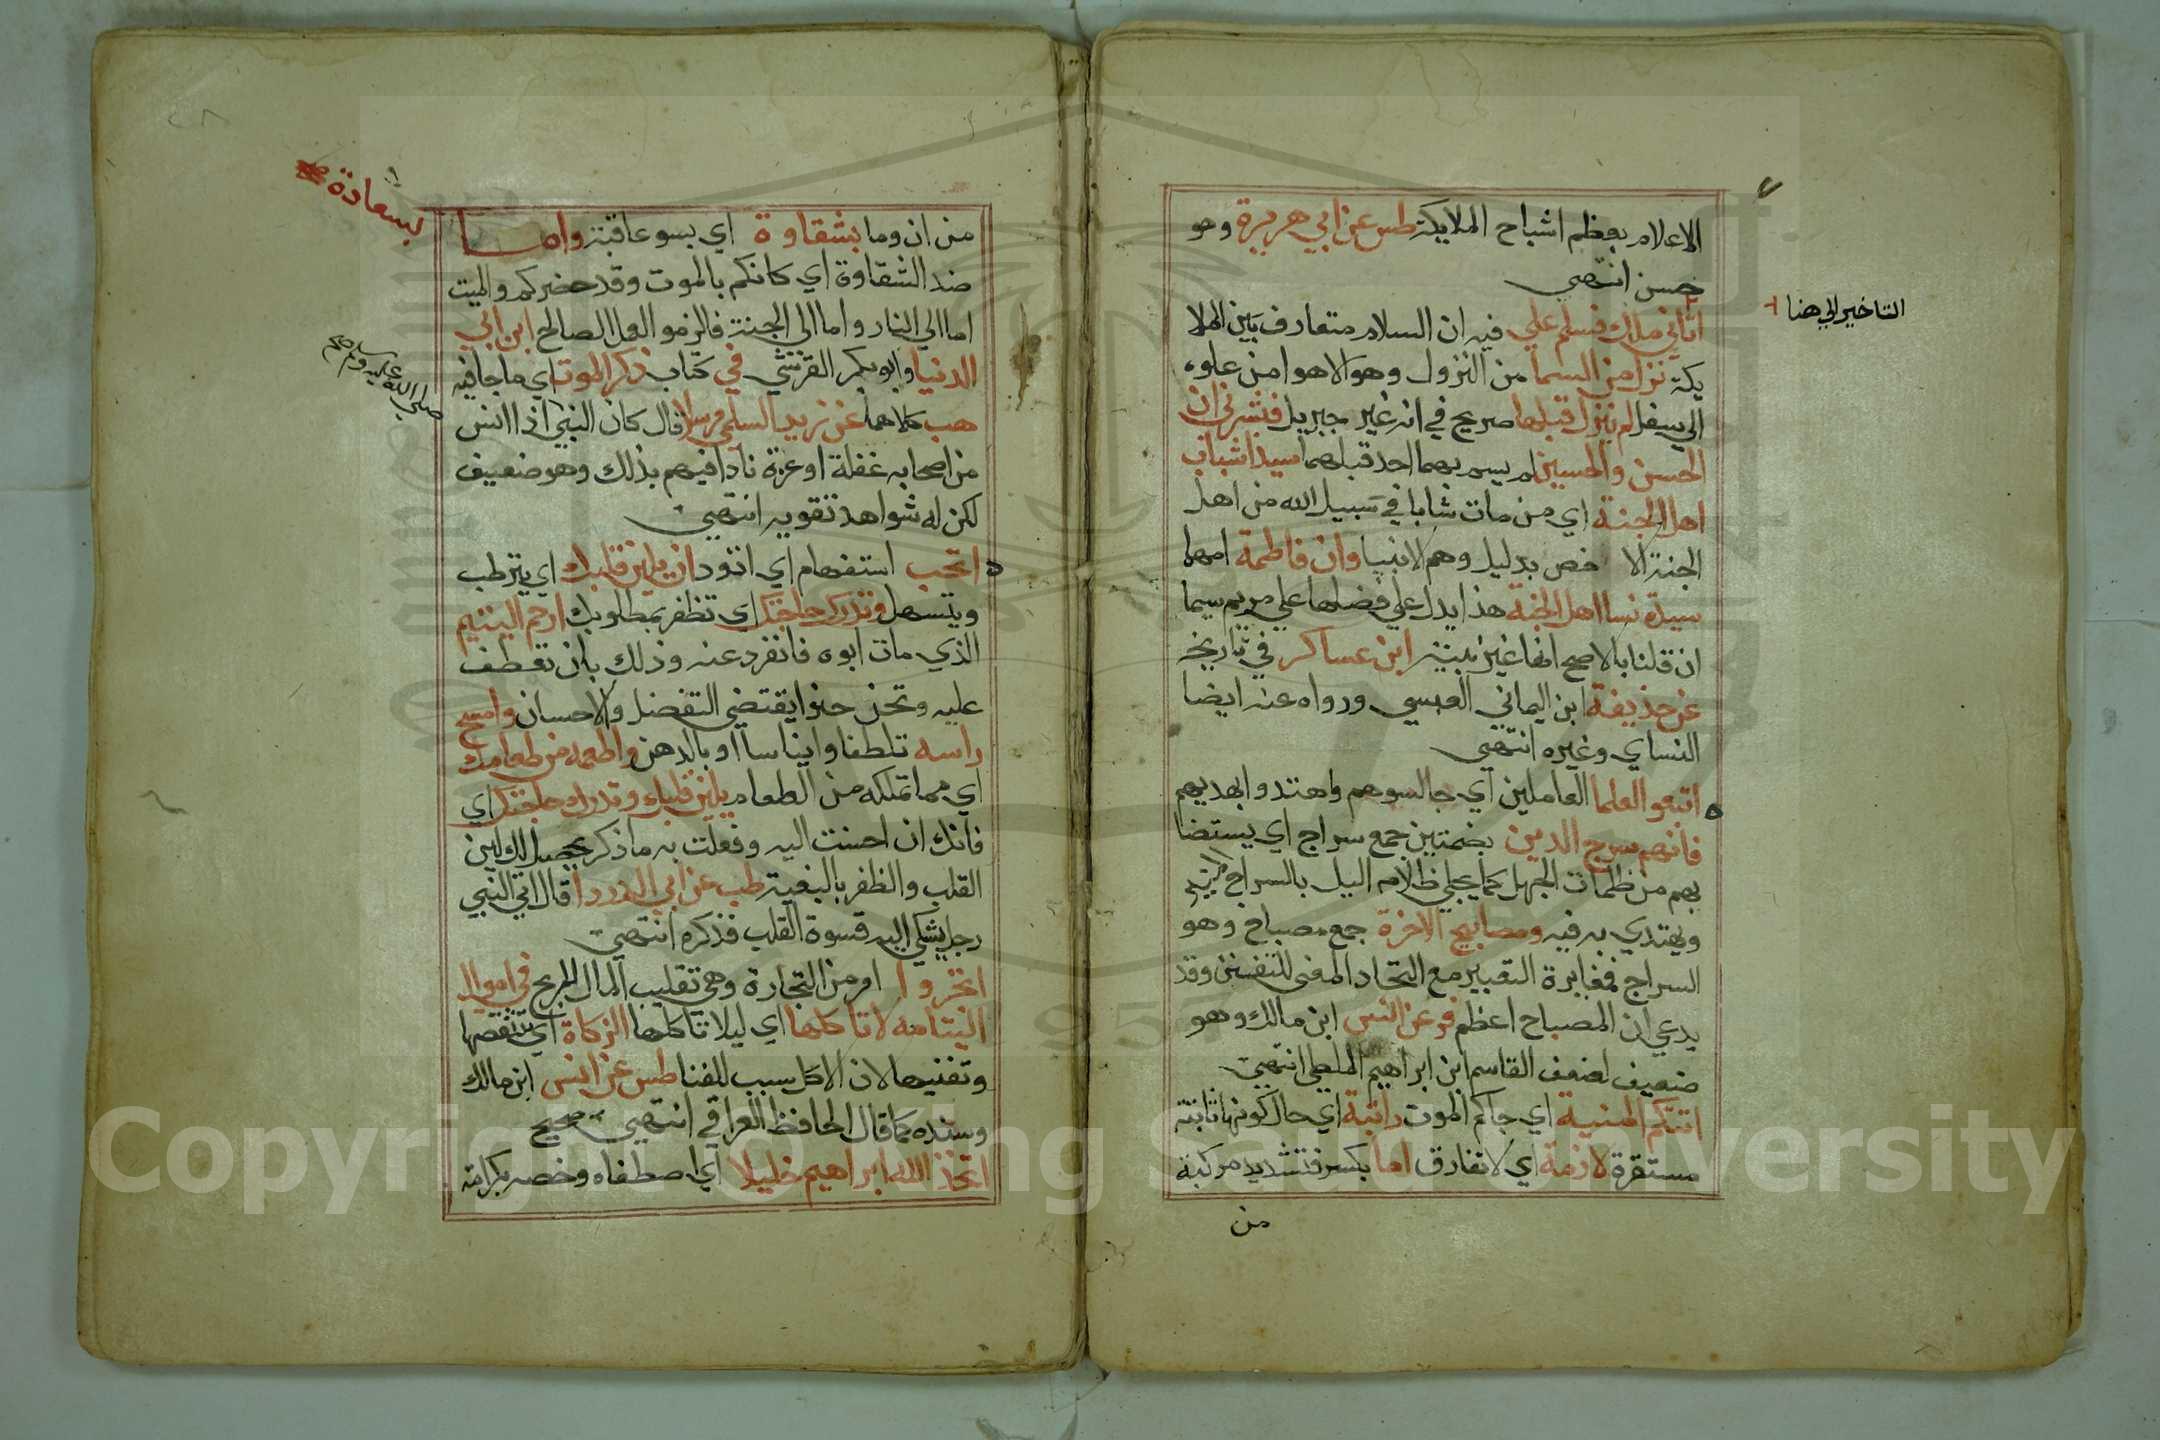 الاعلام بعظم اشباح الملايكة طس عن ابي هريرة وهو
حسن انتهي
التاخير الي هنا
اتاني ملك فسلم علي فيه ان السلام متعارف بين الملا
يكة نزل من السما من النزول وهو الاهوا من علوه
الي سفل لم ينزل قبلها صريح في انه غير جبريل فبشرني ان
الحسن والحسين لم يسم بهما احد قبلهما سيدا شباب
اهل الجنة اي من مات شابا في سبيل الله من اهل
الجنة الا خص بدليل وهم الانبيا وان فاطمة امهما
سيدة نسا اهل الجنة هذا يدل علي فضلها علي مريم سيما
ان قلنا بالاصح انها غير نبية ابن عساكر في تاريخه
عن حذيفة ابن اليماني العبسي ورواه عنه ايضا
النساي وغيره انتهي
اتبعو العلما العاملين اي جالسوهم واهتدوا بهديهم
فانهم سرج الدين بضمتين جمع سراج اي يستضا
بهم من ظلمات الجهل كما يجلي ظلام اليل بالسراج
ويهتدي به فيه ومصابيح الاخرة جمع مصباح وهو
السراج فمغايرة التعبير مع اتحاد المعني للتفنن وقد
يدعي ان المصباح اعظم فر عن انس ابن مالك وهو
ضعيف لضعف القاسم ابن ابراهيم الملطي انتهي
اتتكم المنية اي جاكم الموت راتبة اي حال كونها ثابتة
مستقرة لازمة اي لا تفارق اما بكسر فتشديد مركبة
من
من ان وما بشقاوة اي بسو عاقبة واما
بسعادة
ضد الشقاوة اي كانكم بالموت وقد حضركم والميت
اما الي النار واما الي الجنة فالزمو العمل الصالح ابن ابي
الدنيا وابو بكر القرشي في كتاب ذكر الموت اي ما جا فيه
هب كلاهما عن زيد السلمي مرسلا قال كان النبي اذا انس
صلي الله عليه وسلم صح
من اصحابه غفلة او غرة نادا فيهم بذلك وهو ضعيف
لكن له شواهد تقويه انتهي
اتحب استفهام اي اتود ان يلين قلبك اي يترطب
ويتسهل وتدرك حاجتك اي تظفر بمطلوبك ارحم اليتيم
الذي مات ابوه فانفرد عنه وذلك بان تعطف
عليه وتحن حنوا يقتضي التفضل والاحسان وامسح
راسه تلطفا وايناسا او بالدهن واطعمه من طعامك
اي مما تملكه من الطعام يلين قلبك وتدرك حاجتك اي
فانك ان احسنت اليه وفعلت به ما ذكر يحصل لك لين
القلب والظفر بالبغية طب عن ابي الدردا قال اتي النبي
رجل يشكي اليه قسوة القلب فذكره انتهي
اتجروا امر من التجارة وهي تقليب المال للربح في اموال
اليتامه لا تاكلها اي ليلا تاكلها الزكاة اي تنقصها
وتفنيها لان الاكل سبب للفنا طس عن انس ابن مالك
وسنده كما قال الحافظ العراقي انتهي صحيح
اتخذ الله ابراهيم خليلا اي اصطفاه وخصه بكرامة
Copyright © King Saud University